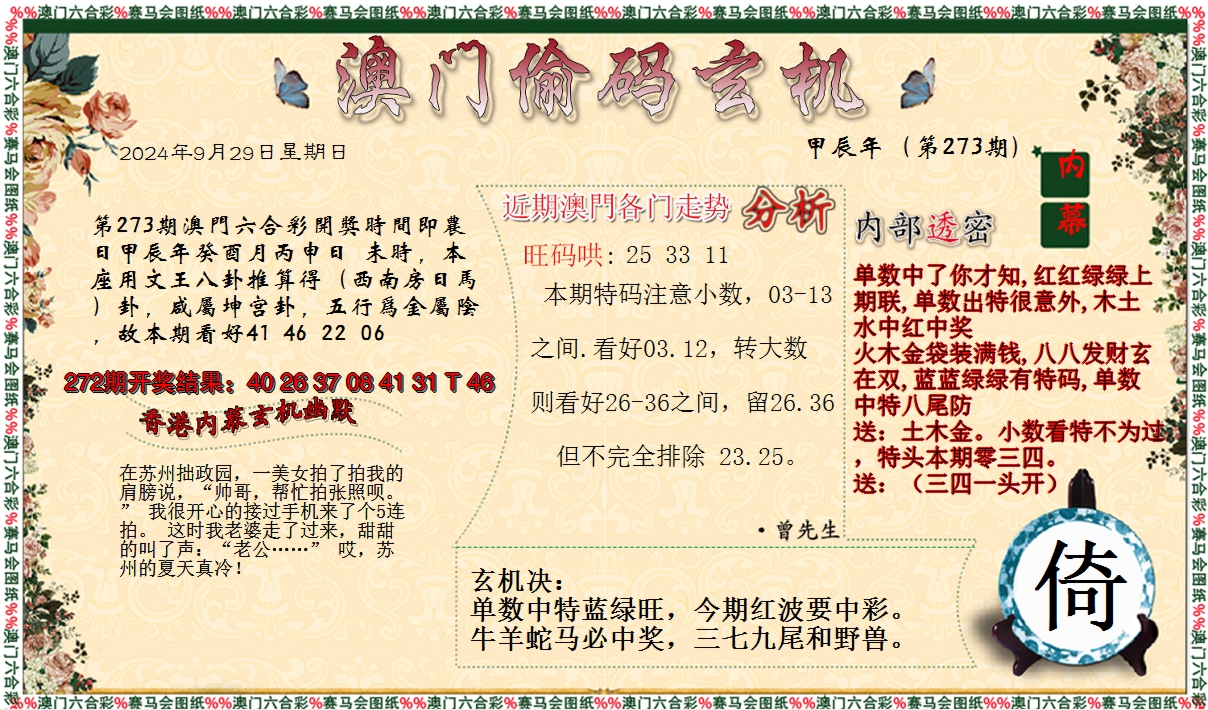 %%澳门六合彩%赛马会图纸%%澳门六合彩%赛马会图纸%%澳门六合彩%赛马会图纸%%澳门六合彩%赛马会图纸%%澳门六合彩%赛马会图纸%%澳门六合彩%赛马会图纸%%
澳门偷码玄机
2024年9月29日星期日
甲辰年 （第273期）
内
幕
第273期澳門六合彩開獎時間即農
日甲辰年癸酉月丙申日 未時，本
座用文王八卦推算得（西南房日馬
）卦，咸屬坤宫卦，五行爲金屬陰
，故本期看好41 46 22 06
272期开奖结果：40 26 37 08 41 31 T 46
香港内幕玄机幽默
在苏州拙政园，一美女拍了拍我的
肩膀说，“帅哥，帮忙拍张照呗。
” 我很开心的接过手机来了个5连
拍。 这时我老婆走了过来，甜甜
的叫了声：“老公……” 哎，苏
州的夏天真冷！
近期澳門各门走势 分析
旺码哄: 25 33 11
本期特码注意小数，03-13
之间.看好03.12，转大数
则看好26-36之间，留26.36
但不完全排除 23.25。
·曾先生
内部透密
单数中了你才知,红红绿绿上
期联,单数出特很意外,木土
水中红中奖
火木金袋装满钱,八八发财玄
在双,蓝蓝绿绿有特码,单数
中特八尾防
送：土木金。小数看特不为过
，特头本期零三四。
送：（三四一头开）
玄机决：
单数中特蓝绿旺，今期红波要中彩。
牛羊蛇马必中奖，三七九尾和野兽。
倚
%%澳门六合彩%赛马会图纸%%澳门六合彩%赛马会图纸%%澳门六合彩%赛马会图纸%%澳门六合彩%赛马会图纸%%澳门六合彩%赛马会图纸%%澳门六合彩%赛马会图纸%%